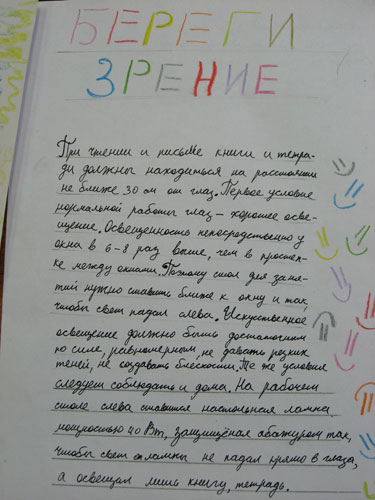 БЕРЕГИ
ЗРЕНИЕ
При чтении и письме книги и тетра-
ди должны находиться на расстоянии
не ближе 30 см от глаз. Первое условие
нормальной работы глаз - хорошее осве-
щение. Освещенность непосредственно у
окна в 6-8 раз выше, чем в простен-
ке между окнами. Поэтому стол для заня-
тий нужно ставить ближе к окну и так,
чтобы свет падал слева. Искусственное
освещение должно быть достаточным
по силе, равномерным, не давать резких
теней, не создавать блескости. Те же условия
следует соблюдать и дома. На рабочем
столе слева ставится настольная лампа
мощностью 40 Вт, защищёная абажуром так,
чтобы свет от лампы не падал прямо в глаза,
а освещал лишь книгу, тетрадь.